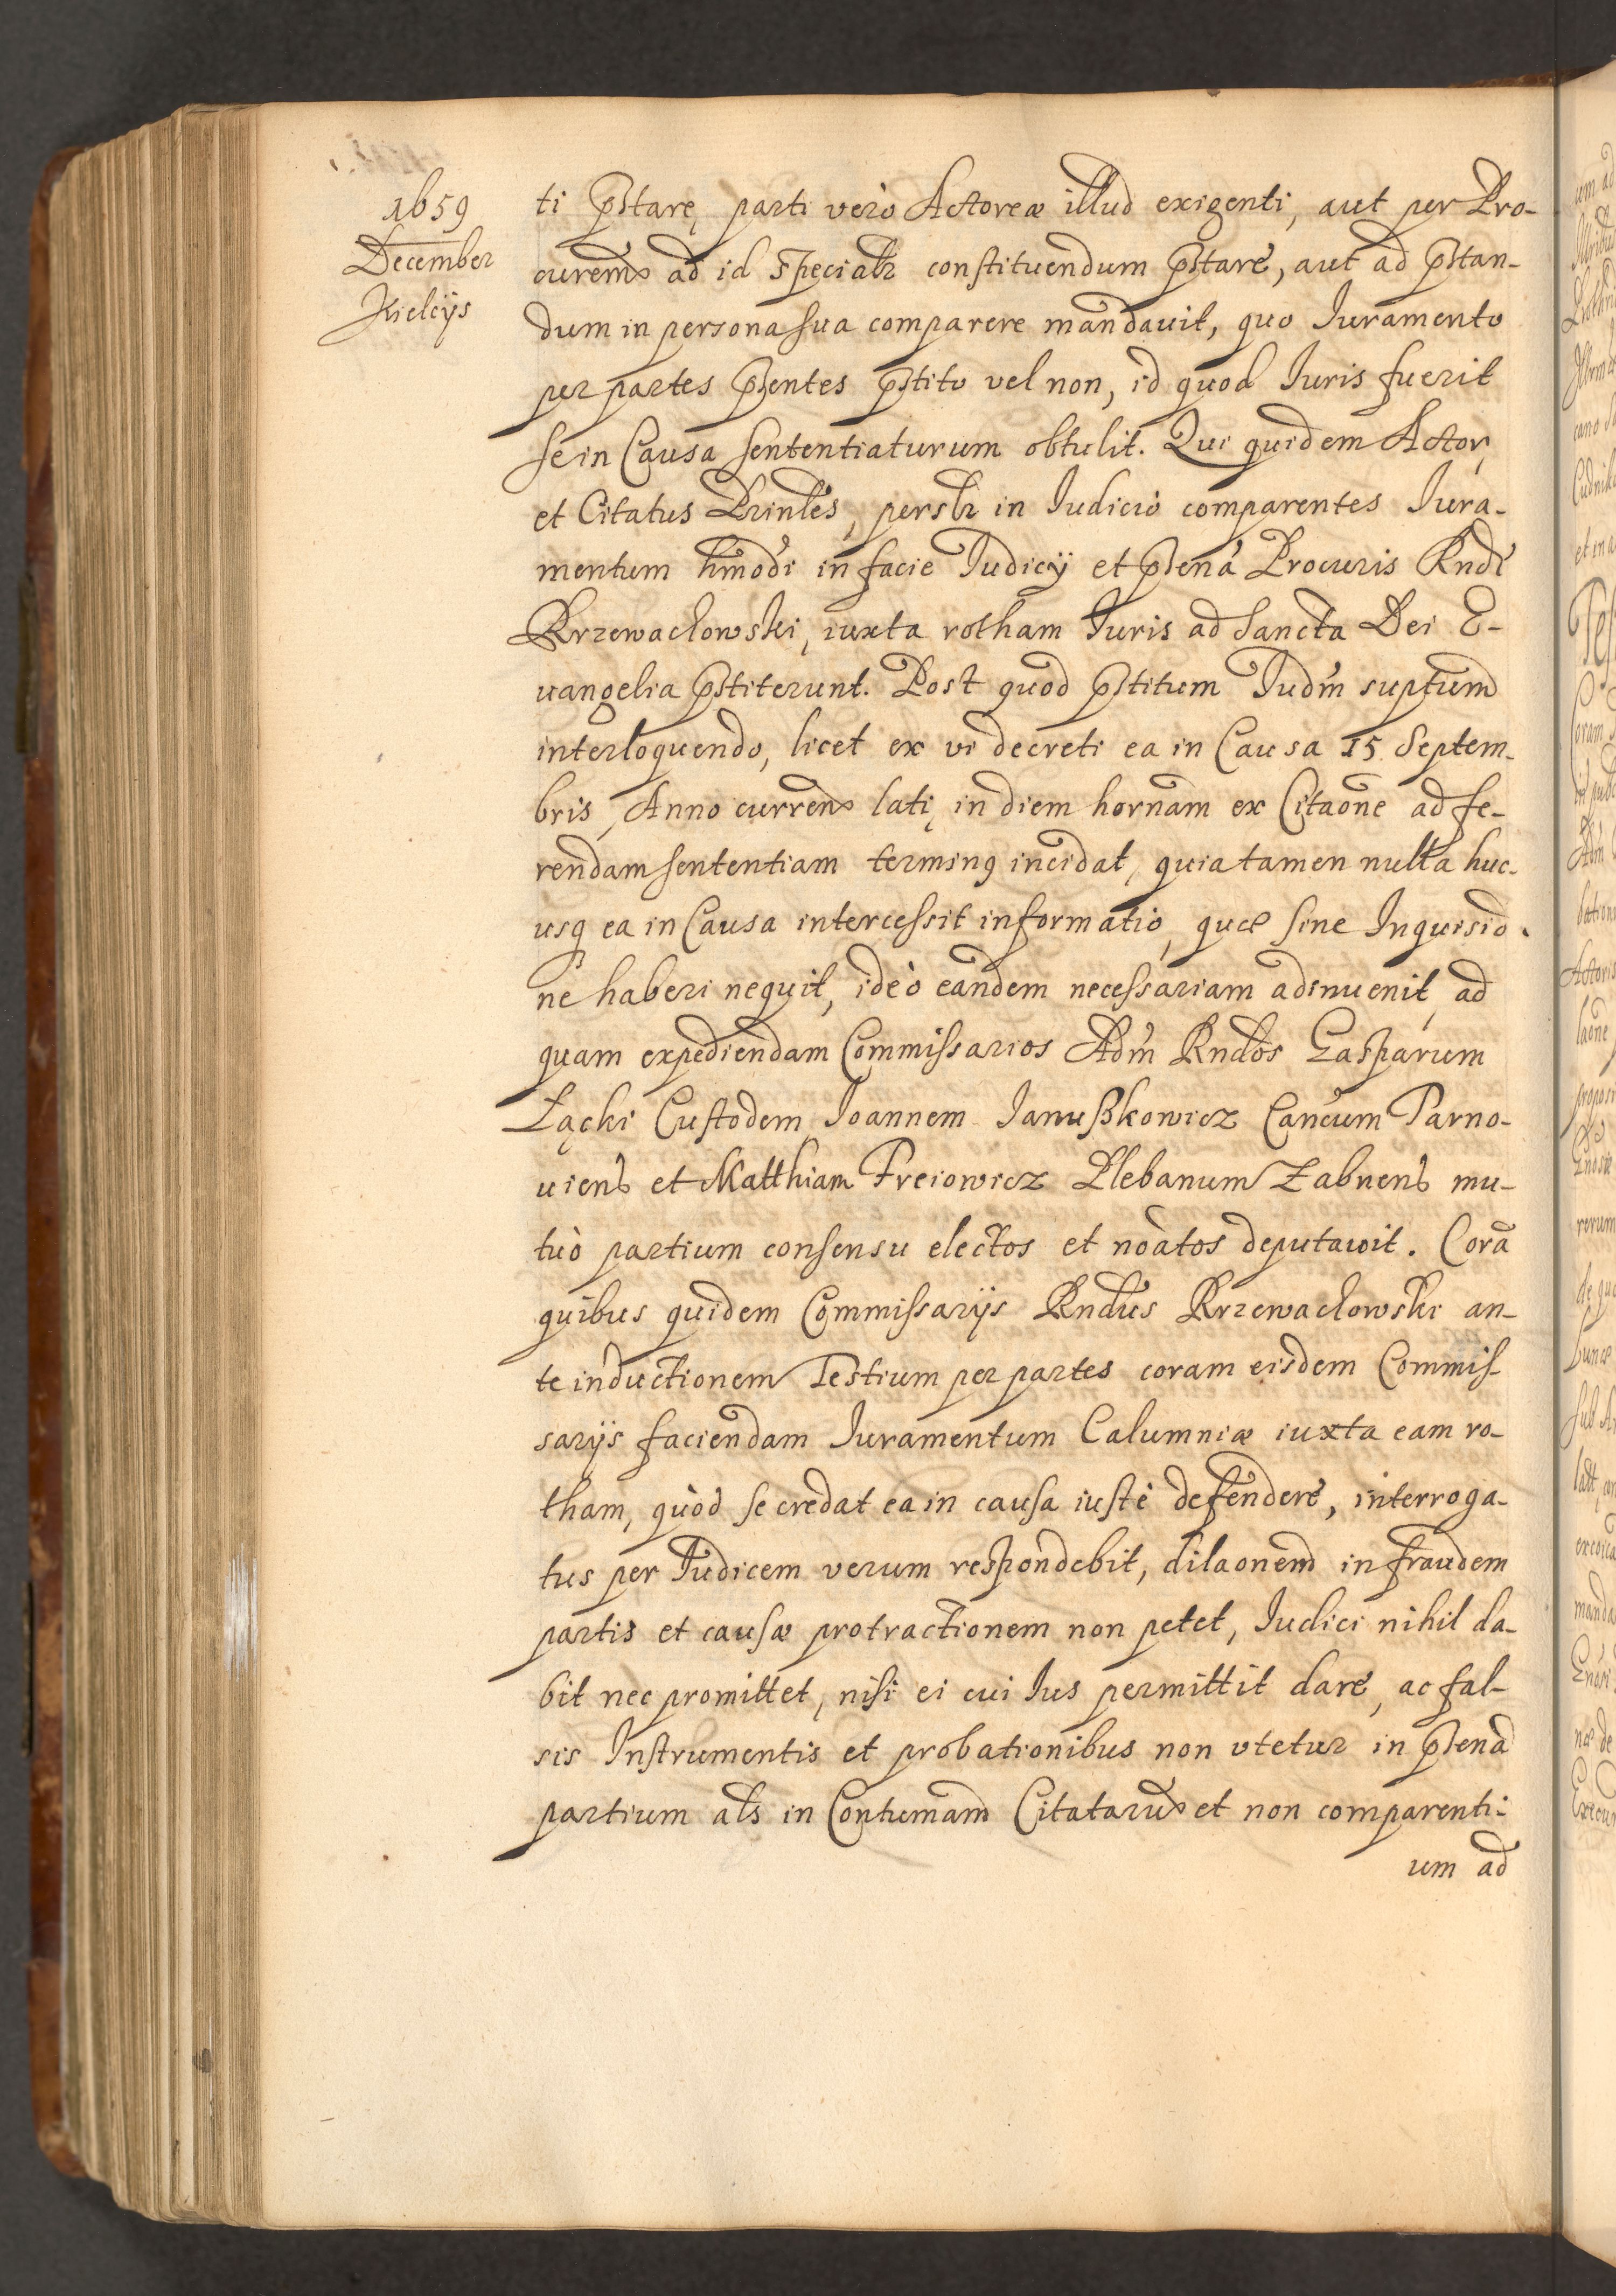 1659
December
Kielcijs
ti pstare, parti verò Actoreæ illud exigenti, aut per Pro-
curem ad id specialr constituendum pstare, aut ad pstan-
dum in persona sua comparere mandauit, quo Iuramento
per partes psentes pstito vel non, id quod Iuris fuerit
se in Causa sententiaturum obtulit. Qui quidem Actor,
et Citatus Prinles, perslr in Iudicio comparentes Iura-
mentum hmodi in facie Iudicij et psena Procuris Rndi
Krzewacłowski, iuxta rotham Iuris ad Sancta Dei E-
uangelia pstiterunt. Post quod pstitum Iudm suptum
interloquendo, licet ex vi decreti ea in Causa 15 Septem-
bris, Anno curren lati, in diem hornam ex Citaone ad fe-
rendam sententiam terminq incidat, quia tamen nulla huc-
usq ea in Causa intercessit informatio, quæ sine Inquisio-
ne haberi nequit, ideò eandem necessariam adinuenit, ad
quam expediendam Commissarios Adm Rndos Gasparum
Łącki Custodem Ioannem Ianußkowicz Cancum Tarno-
uiens et Matthiam Freiowicz Plebanum Zabnens mu-
tuò partium consensu electos et noatos deputavit. Corã
quibus quidem Commissarijs Rndus Krzewacłowski an-
te inductionem Testium per partes coram eisdem Commis-
sarijs faciendam Iuramentum Calumniæ iuxta eam ro-
tham, quòd se credat ea in causa iustè defendere, interroga-
tus per Iudicem verum respondebit, dilaonem in fraudem
partis et causæ protractionem non petet, Iudici nihil da-
bit nec promittet, nisi ei cui Ius permittit dare, ac fal-
sis Instrumentis et probationibus non vtetur in psena
partium als in Contumam Citataru et non comparenti-
um ad